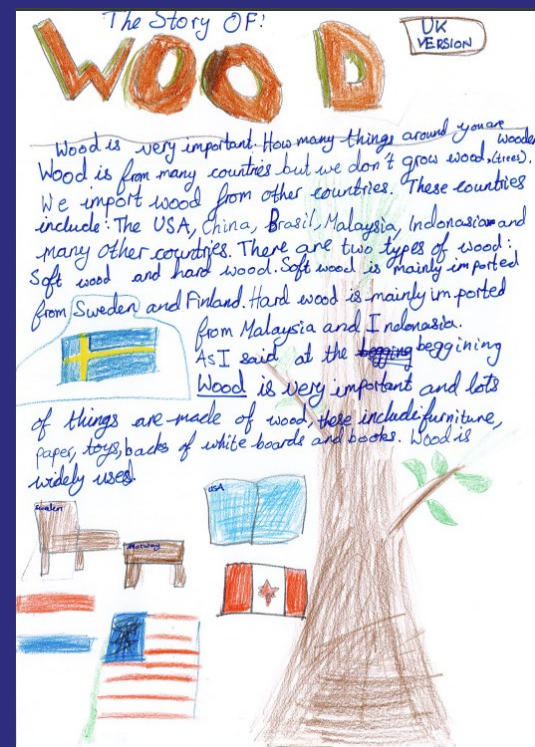 The Story OF:
WOOD
UK
VERSION
Wood is very important. How many things around you are wooden
Wood is from many countries but we don't grow wood, (trees).
We import wood from other countries. These countries
include: The USA, China, Brasil, Malaysia, Indonasia and
many other countries. There are two types of wood:
Soft wood and hard wood. Soft wood is mainly imported
from Sweden and Finland. Hard wood is mainly imported
from Malaysia and Indonasia.
As I said at the beggining
Wood is very important and lots
of things are made of wood, these include: furniture,
paper, toys, backs of white boards and books. Wood is
widely used.
Sweden
Norway
USA